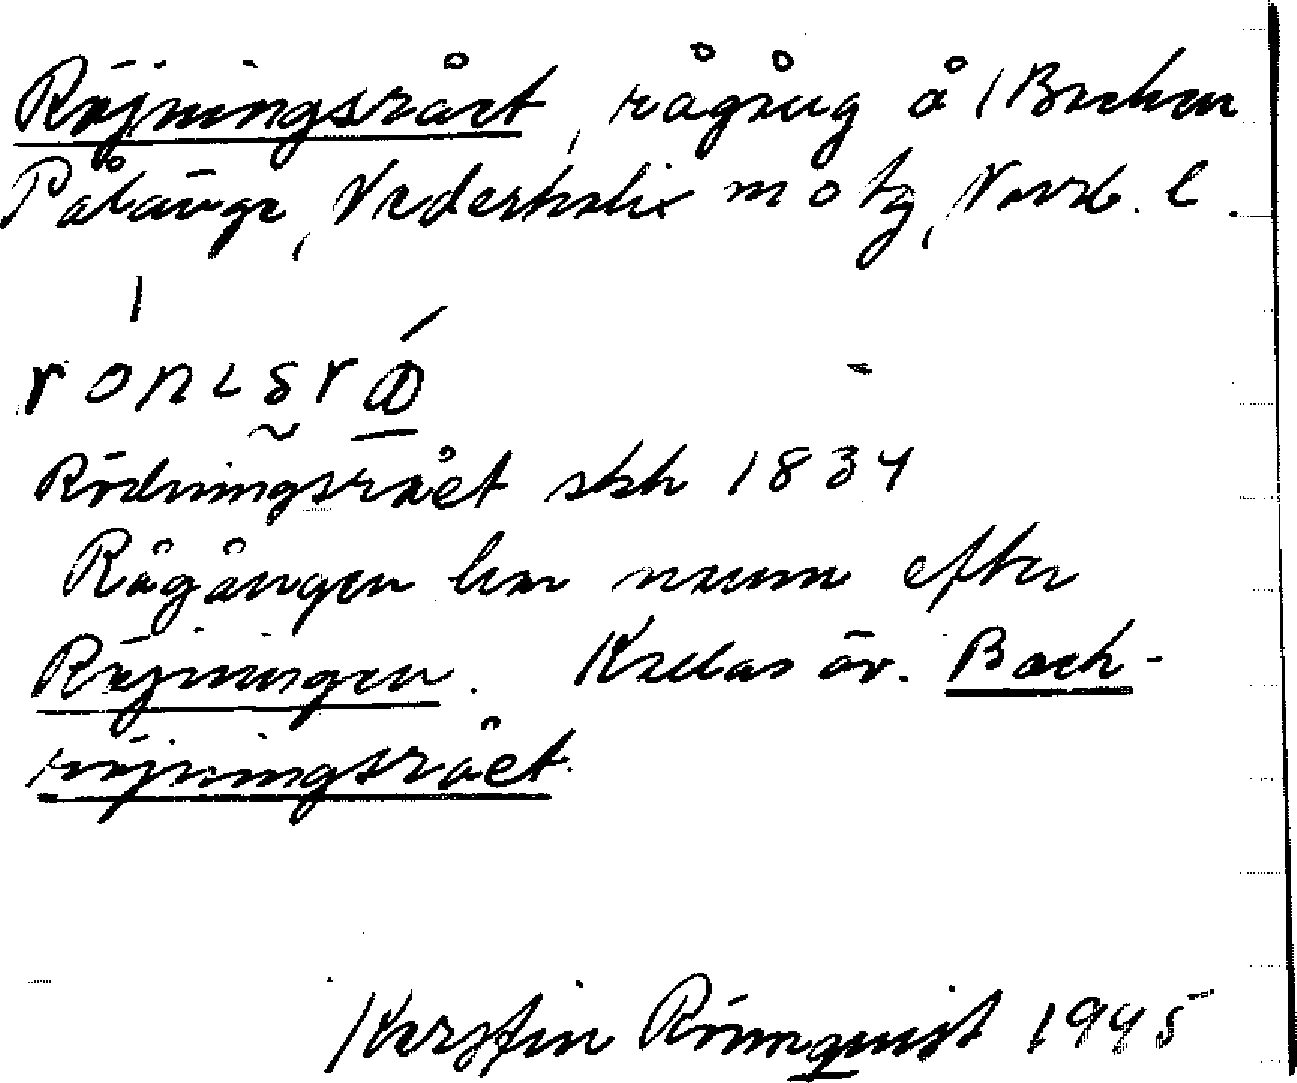 Röjningsrået, rågång å (Backen
Pålänge, Nederkalix sn o tg, Norrb. l.
rönisrå
Rödningsrået skh 1834
Rågången har namn efter
Röjningen. Kallas äv. Back-
röjningsrået.
Kerstin Rönnquist 1945